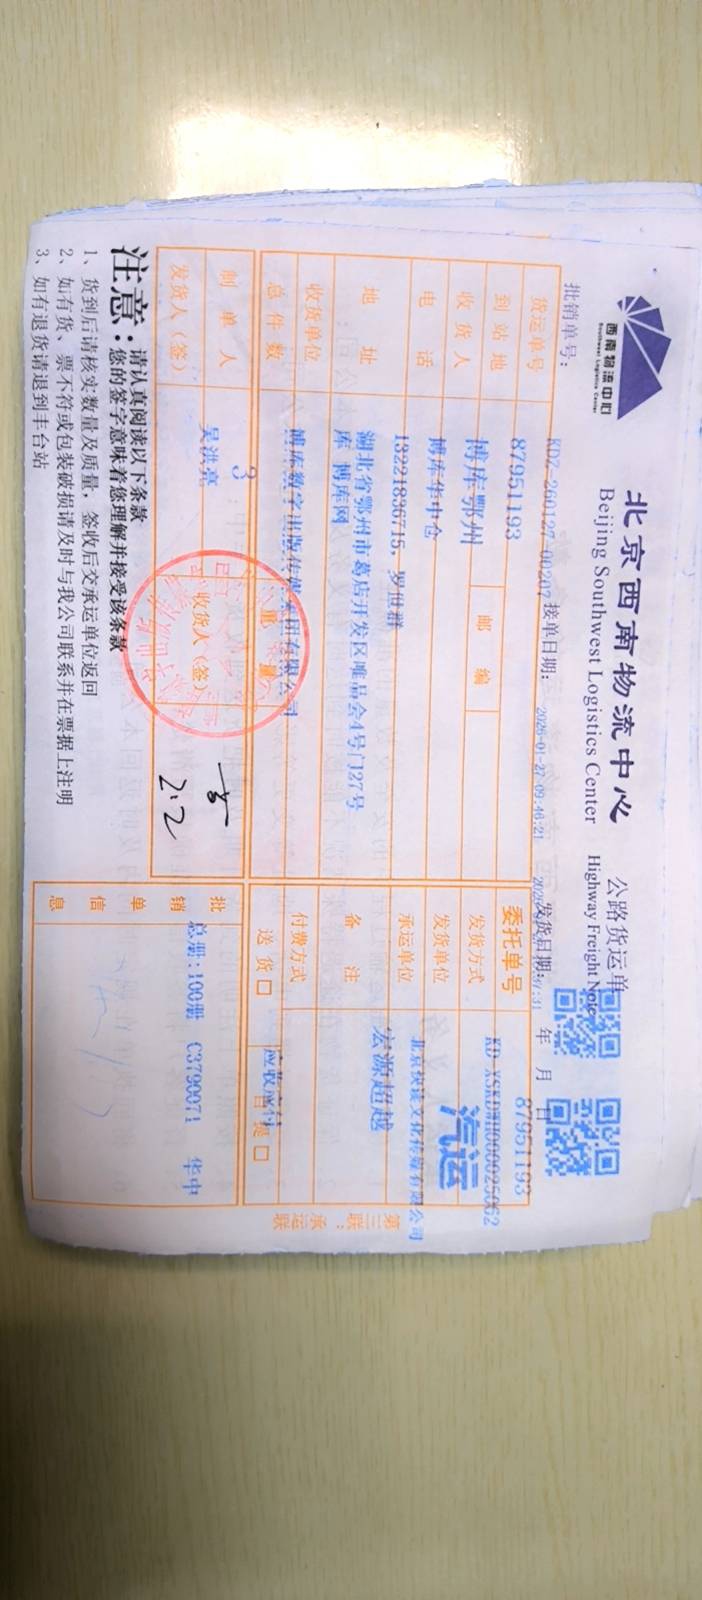 西南物流中心
Southwest Logistics Center
北京西南物流中心
Beijing Southwest Logistics Center
公路货运单
Highway Freight Note
批销单号：
KDZ-260127-00207
接单日期：
2026-01-27 09:46:21
发货日期：
年 月 日
货运单号 87951193
委托单号 87951193
到站地 博库鄂州
邮编
发货方式 汽运
KD-XSKDWH000025062
收货人 博库华中仓
发货单位 北京快读文化传媒有限公司
电话 13221836715、罗世群
承运单位 宏源超越
地址 湖北省鄂州市葛店开发区唯品会4号门27号
库 博库网
备注
收货单位 博库数字出版传媒集团有限公司
付费方式 应收应付
总件数 3
重量
送货口 自提口
制单人 吴洪亮
收货人（签）
2.2
发货人（签）
批销单信息
总册：100册 C3790071 华中
第三联：承运联
注意：
请认真阅读以下条款
您的签字意味着您理解并接受该条款
1、货到后请核实数量及质量，签收后交承运单位返回
2、如有货、票不符或包装破损请及时与我公司联系并在票据上注明
3、如有退货请退到丰台站